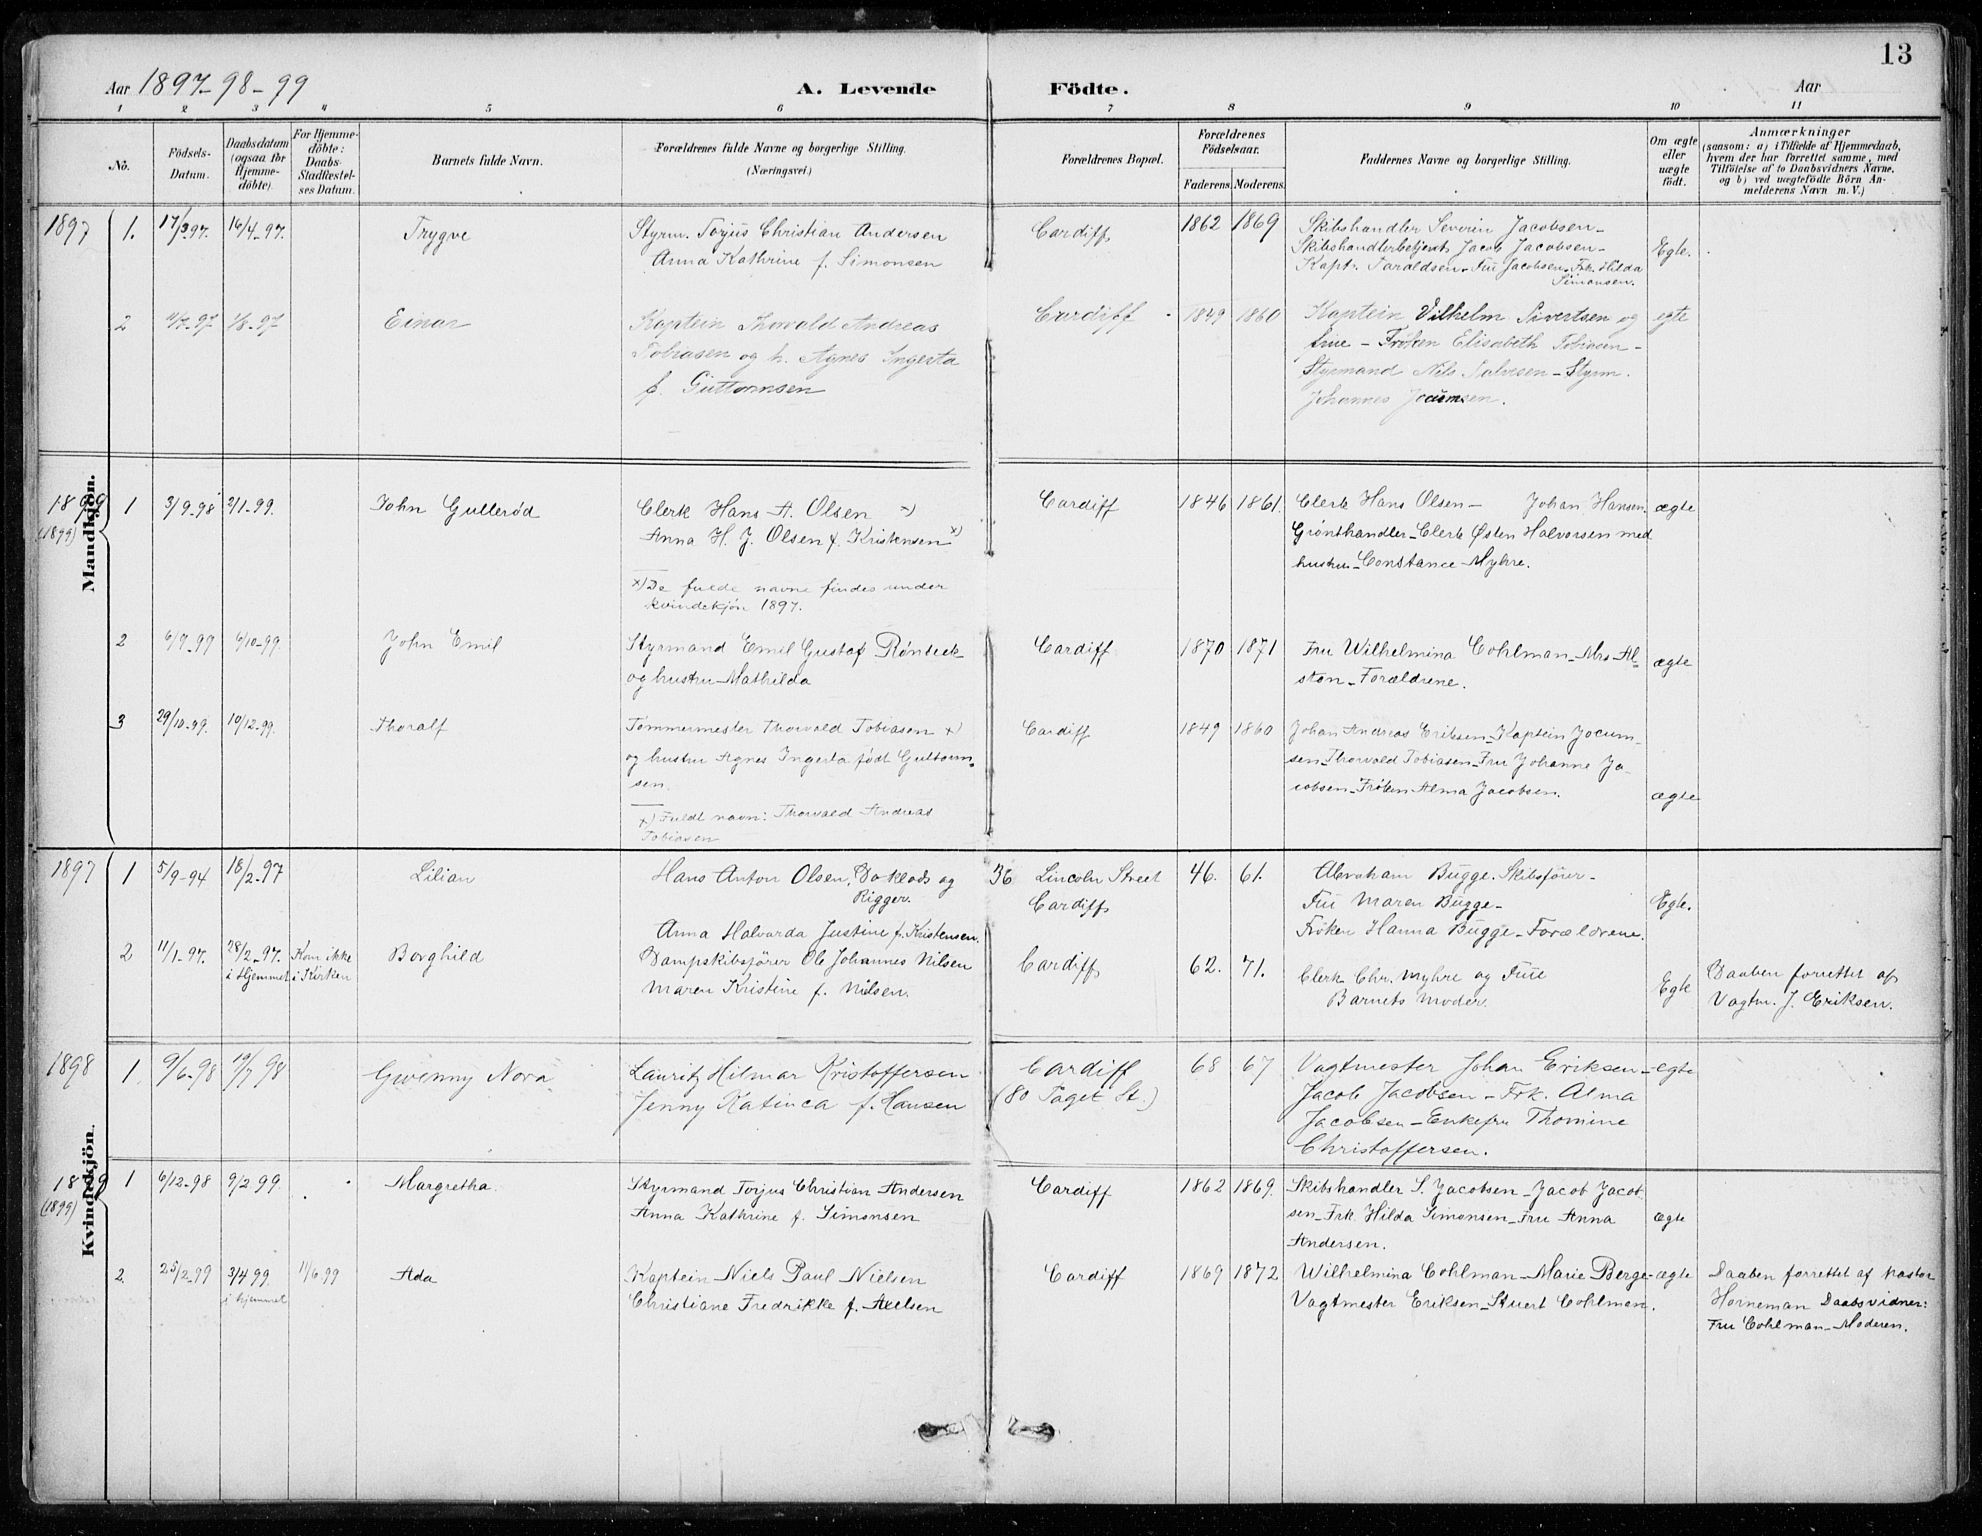 13
Aar 1897-98-99
A. Levende Födte.
Aar
1 2 3 4 5 6 7 8 9 10 11
No.
Födsels-
Datum.
Daabsdatum
(ogsaa for
Hjemme-
döbte).
For Hjemme-
döbte:
Daabs-
Stadfæstel-
ses Datum.
Barnets fulde Navn.
Forældrenes fulde Navne og borgerlige Stilling.
(Næringsvei.)
Forældrenes Bopæl.
Forældrenes
Födselsaar.
Faderens. Moderens.
Faddernes Navne og borgerlige Stilling.
Om ægte
eller
uægte
födt.
Anmærkninger
(saasom: a) i Tilfælde af Hjemmedaab,
hvem der har forrettet samme, med
Tilföielse af to Daabsvidners Navne,
og b) ved uægtefödte Börn An-
melderens Navn m. V.)
Mandkjön.
1897
1. 17/3 97. 16/4-97. Trygve
Styrm. Torjus Christian Andersen
Anna Kathrine f. Simonsen
Cardiff 1862 1869
Skibshandler Severin Jacobsen-
Skibshandlerbetjent Jacob Jacobsen-
Kaptn. Taraldsen-Fru Jacobsen-Frk. Hilda
Simonsen.
Egte.
2 11/7-97 1/8-97 Einar
Kaptein Thorvald Andreas
Tobiasen og h. Agnes Ingerta
f. Guttormsen
Cardiff 1849 1860
Kaptein Vilhelm Sivertsen og
frue - Frøken Elisabeth Tobiasen -
Styrmand Nils Salvesen - Styrm.
Johannes Jocumsen.
egte
1899
(1899)
1 3/9-98 2/1-99. John Gullerød
Clerk Hans A. Olsen x)
Anna H. J. Olsen f. Kristensen x)
x) De fulde navne findes under
kvindekjön 1897.
Cardiff 1846 1861
Clerk Hans Olsen - Johan Hansen.
Grønthandler-Clerk Østen Halvorsen med
hustru-Constance Myhre.
ægte
2 6/9-99 6/10-99. John Emil
Styrmand Emil Gustaf
og hustru Mathilda
Cardiff 1870 1871
Fru Wilhelmina Cohlman-Mrs Al-
ston-Forældrene.
ægte
3 29/10-99. 10/12-99. Thoralf
Tømmermester Thorvald Tobiasen x)
og hustru Agnes Ingerta født Guttorm-
sen.
x) Fuldt navn: Thorvald Andreas
Tobiasen
Cardiff 1849 1860
Johan Andreas Eriksen-Kaptein Jocum-
sen-Thorvald Tobiasen-Fru Johanne Ja-
cobsen-Frøken Alma Jacobsen.
ægte
Kvindekjön.
1897
1 5/9-94 18/2-97 Lilian
Hans Anton Olsen, Doklods og
Rigger.
Anna Halvarda Justine f. Kristensen.
36 Lincoln Street
Cardiff
46. 61.
Abraham Bugge. Skibsfører-
Fru Maren Bugge-
Frøken Hanna Bugge-Forældrene.
Egte.
2 11/1-97. 28/2-97.
i Hjemmet
Kom ikke
i Kirken
Borghild
Dampskibsfører Ole Johannes Nilsen
Maren Kristine f. Nilsen.
Cardiff 62. 71.
Clerk Chr. Myhre og Frue
Barnets Moder.
Egte
Daaben forrettet af
Vagtm. J. Eriksen.
1898
1. 9/6-98 19/7 98 Gwenny Nora
Lauritz Hilmar Kristoffersen
Jenny Katinca f. Hansen
Cardiff
(80 Paget St.)
68 67
Vagtmester Johan Eriksen-
Jacob Jacobsen-Frk. Alma
Jacobsen-Enkefru Thomine
Christoffersen.
egte
1899
(1899)
1 6/12-98 9/2 99. Margretha.
Styrmand Torjus Christian Andersen
Anna Kathrine f. Simonsen
Cardiff 1862 1869.
Skibshandler S. Jacobsen-Jacob Jacob
sen-Frk. Hilda Simonsen-Fru Anna
Andersen.
ægte
2. 25/2-99 3/4 99.
i hjemmet
11/6 99
Ada
Kaptein Niels Paul Nielsen
Christiane Fredrikke f. Axelsen
Cardiff 1869 1872
Wilhelmina Cohlman-Marie Berge-
Vagtmester Eriksen-Stuert Cohlman.
ægte
Daaben forrettet af pastor
Horneman Daabsvidner:
Fru Cohlman-Moderen.